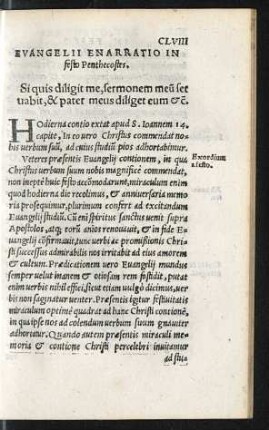 CLVIII
EVANGELII ENARRATIO IN
festo Penthecostes.
Si quis diligit me, sermonem meũ ser
uabit, & pater meus diliget eum &c̃.
HOdierna contio extat apud S. Ioannem 14.
capite, In eo uero Christus commendat no-
bis uerbum suũ, ad cuius studii pios adhortabimur.
Veteres præsentis Euangelij contionem, in qua
Christus uerbum suum nobis magnifice commendat,
non inepte huic festo accõmodarunt, miraculum enim
quod hodierna die recolimus, & anniuersaria memo
ria prosequimur, plurimum confert ad excitandum
Euangelij studiũ. Cũ eni spiritus sanctus uenit supra
Apostolos, atq; corũ animos renouauit, & in fide Eu
angelij cõfirmauit, tunc uerbi ac promissionis Chri-
sti successus admirabilis nos irritabit ad eius amorem
& cultum. Prædicationem uero Euangelij mundus
semper uelut inanem & otiosam rem fastidit, putat
enim uerbis nihil effici, sicut etiam uulgò dicimus, uer
bis non saginatur uenter. Præsentis igitur festiuitatis
miraculum optimè quadrat ad hanc Christi contionẽ,
in qua ipse nos ad colendum uerbum suum gnauiter
adhortatur. Quando autem præsentis miraculi me
moria & contione Christi percelebri inuitantur
ad stu⸗
Exordium
a festo.